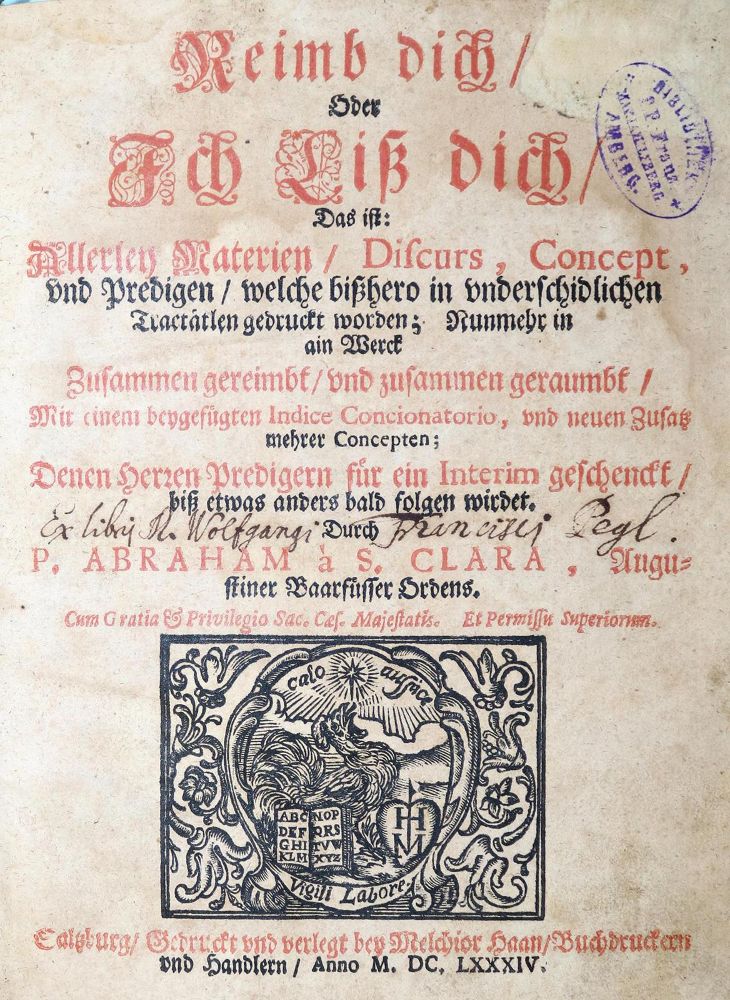 Reimb dich /
Oder
Ich Liß dich /
Das ist:
Allerley Materien / Discurs, Concept,
vnd Predigen / welche bißhero in vnderschidlichen
Tractätlen gedruckt worden; Nunmehr in
ain Werck
Zusammen gereimbt / vnd zusammen geraumbt /
Mit einem beygefügten Indice Concionatorio, vnd neuen Zusatz
mehrer Concepten;
Denen Herren Predigern für ein Interim geschenckt /
biß etwas anders bald folgen wirdet.
Ex libris R. Wolfgangi Francisci Pegl.
Durch
P. ABRAHAM à S. CLARA, Augu-
stiner Baarfüsser Ordens.
Cum Gratia & Privilegio Sac. Cæs. Majestatis. Et Permissu Superiorum.
BIBLIOTHEK
P P Franz
MARIAHILFBERG
AMBERG.
Cælo auspice
ABC NOP
DEF QRS
GHI TVW
KLM XYZ
HM
Vigili Labore.
Saltzburg / Gedruckt vnd verlegt bey Melchior Haan / Buchdruckern
vnd Handlern / Anno M. DC. LXXXIV.